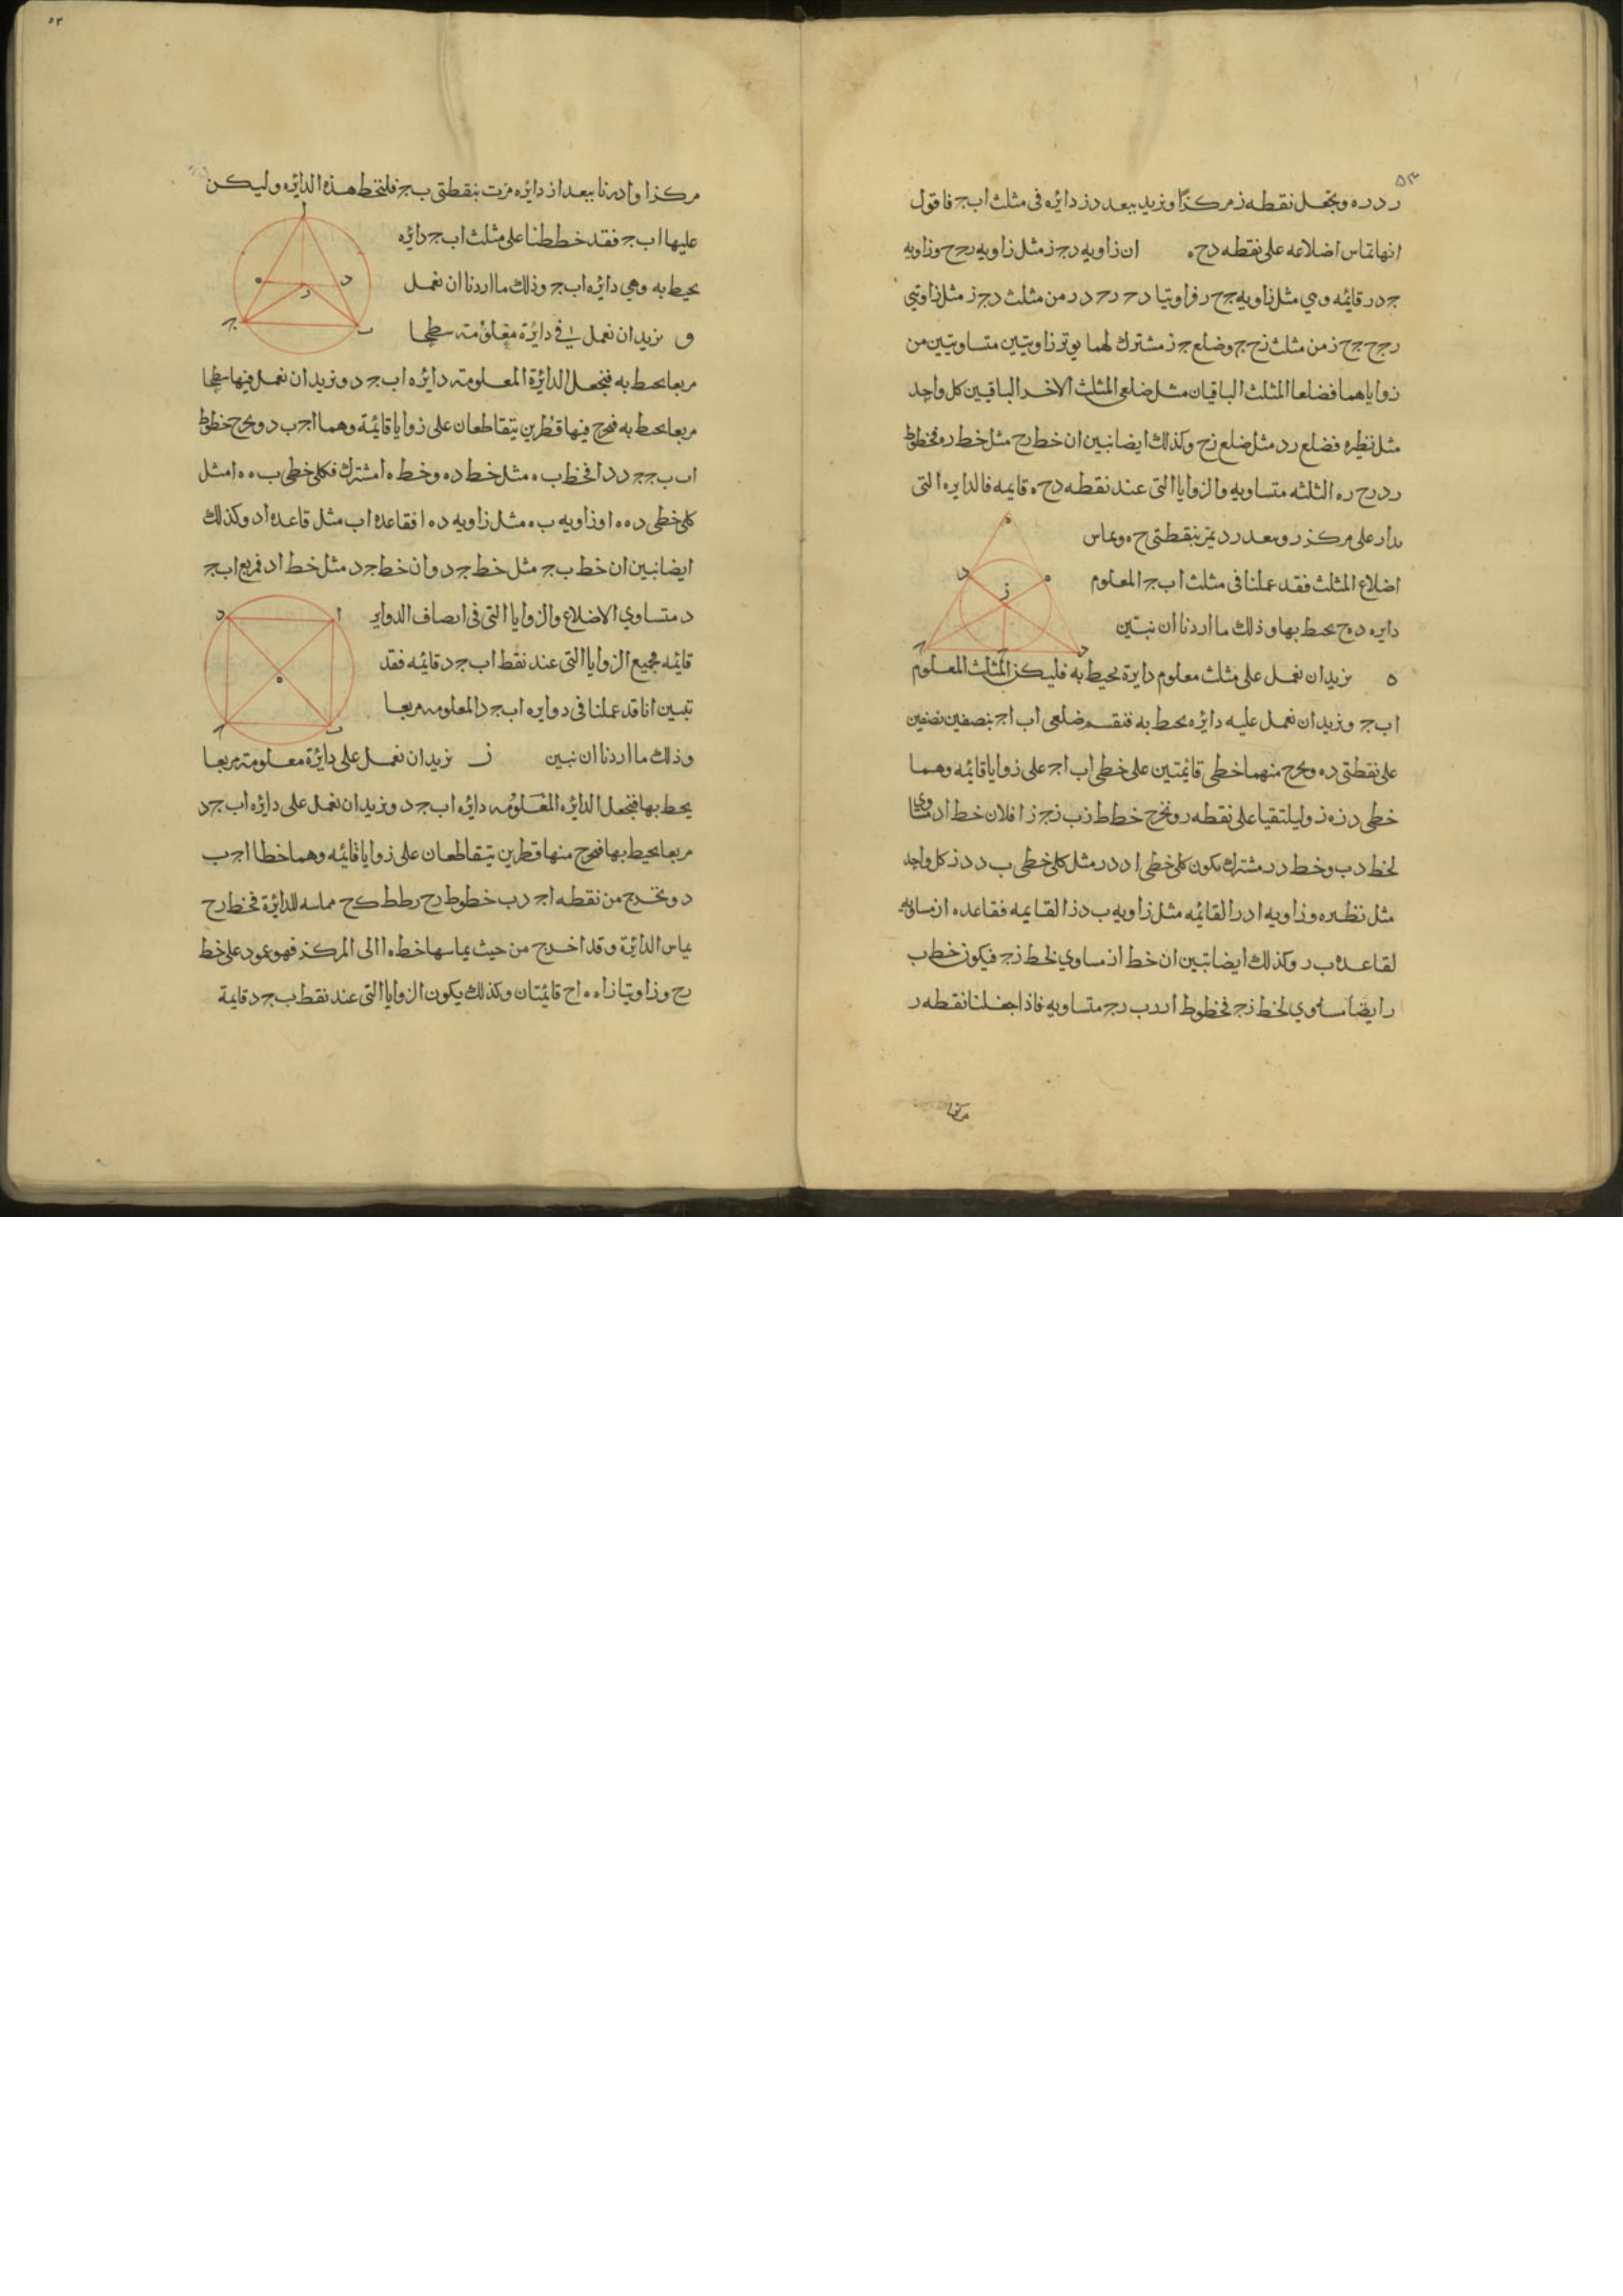 ر د ر ه ونجعل نقطه ز مركزا ونريد ببعد د ز دائره فى مثلث ا ب ج فاقول
انها تماس اضلاعه على نقطه د ح ه ان زاويه د ج ز مثل زاويه ر ج ح وزاويه
ج د ر قائمه وهي مثل زاويه ج ح ر فزاويتا د ج ر ج د ر من مثلث د ج ز مثل زاويتي
ر ج ح ج ح ز من مثلث ز ح ج وضلع ج ز مشترك لهما يوتر زاويتين متساويتين من
زواياهما فضلعا المثلث الباقيان مثل ضلعى المثلث الاخر الباقيين كل واحد
مثل نظيره فضلع ر د مثل ضلع ز ح وكذلك ايضا نبين ان خط ر ح مثل خط ر ه فخطوط
ر د ر ح ر ه الثلثه متساويه والزوايا التى عند نقطه د ح ه قايمه فالدايره التى
تدار على مركز ر وببعد ر د تمر بنقطتى ح ه وتماس
اضلاع المثلث فقد عملنا فى مثلث ا ب ج المعلوم
دايره د ه ح يحيط بها وذلك ما اردنا ان نبين
ه نريد ان نعمل على مثلث معلوم دايرة تحيط به فليكن المثلث المعلوم
ا ب ج ونريد ان نعمل عليه دائره تحيط به فنقسم ضلعى ا ب ا ج بنصفين نصفين
على نقطتى د ه ونخرج منهما خطى قائمتين على خطى ا ب ا ج على زوايا قائمه وهما
خطى د ز ه ز وليلتقيا على نقطه ر ونخرج خطط ز ب ز ج ز ا فلان خط ا د مساوي
لخط د ب وخط د ر مشترك يكون كل خطى ا د د ر مثل كل خطى ب د د ز كل واحد
مثل نظيره وزاويه ا د ر القائمه مثل زاويه ب د ز القايمه فقاعده ا ز مساويه
لقاعدة ب ر وكذلك ايضا تبين ان خط ا ز مساوي لخط ز ج فيكون خط ب
ر ايضا مساوي لخط ز ج فخطوط ا ر ر ب ر ج متساويه فاذا جعلنا نقطه ر
مركزا
مركزا وادرنا ببعد ا ز دائره مرت بنقطتى ب ج فلنخط هذه الدائره وليكن
عليها ا ب ج فقد خططنا على مثلث ا ب ج دائره
يحيط به وهي دائره ا ب ج وذلك ما اردنا ان نعمل
و نريد ان نعمل في دائرة معلومة سطحا
مربعا يحيط به فنجعل الدائرة المعلومة دائره ا ب ج د ونريد ان نعمل فيها سطحا
مربعا يحيط به فنخرج فيها قطرين يتقاطعان على زوايا قائمة وهما ا ج ب د ونخرج خطوط
ا ب ب ج ج د د ا فخط ب ه مثل خط د ه وخط ه ا مشترك فكل خطى ب ه ه ا مثل
كل خطى د ه ه ا وزاويه ب ه مثل زاويه د ه ا فقاعدة ا ب مثل قاعدة ا د وكذلك
ايضا نبين ان خط ب ج مثل خط ج د وان خط ج د مثل خط ا د فمربع ا ب ج
د متساوي الاضلاع والزوايا التى فى انصاف الدواير
قائمه فجميع الزوايا التى عند نقط ا ب ج د قائمه فقد
تبين انا قد عملنا فى دوايره ا ب ج د المعلومه مربعا
وذلك ما اردنا ان نبين ز نريد ان نعمل على دائرة معلومة مربعا
يحيط بها فنجعل الدائره المعلومه دائره ا ب ج د ونريد ان نعمل على دائره ا ب ج د
مربعا يحيط بها فنخرج منها قطرين يتقاطعان على زوايا قائمه وهما خطا ا ج ب
د ونخرج من نقطه ا ج د ب خطوط ر ح ر ط ط ك ح مماسه للدائرة فخط ر ح
يماس الدائرة وقد اخرج من حيث يماسها خط ه ا الى المركز فهو عمود على خط
ر ح وزاويتا ز ا ه ه ا ح قائمتان وكذلك يكون الزوايا التى عند نقط ب ج د قايمة